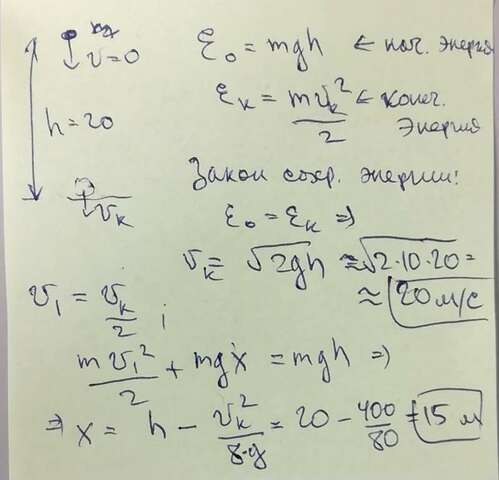 v=0
h=20
v_k
ε₀ = mgh ← нач. энергия
ε_k = mv_k²/2 ← конеч. энергия
Закон сохр. энергии:
ε₀ = ε_k ⇒
v_k = √2gh ≈ √2·10·20 =
≈ 20 м/с
v₁ = v_k/2 ;
mv₁²/2 + mgx = mgh ⇒
⇒ x = h - v_k²/8·g = 20 - 400/80 = 15 м